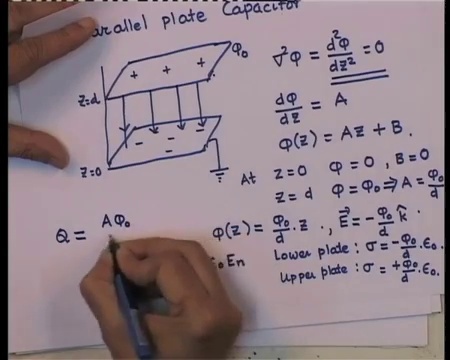 Parallel plate Capacitor
φ₀
+ + +
z=d
- - -
- -
z=0
∇²φ = d²φ/dz² = 0
dφ/dz = A
φ(z) = Az + B.
At z=0 φ=0, B=0
z=d φ=φ₀ ⇒ A = φ₀/d
φ(z) = φ₀/d . z , E⃗ = -φ₀/d k̂
Lower plate : σ = -φ₀/d . ε₀.
Upper plate : σ = +φ₀/d . ε₀.
ε₀ En
Q = Aφ₀